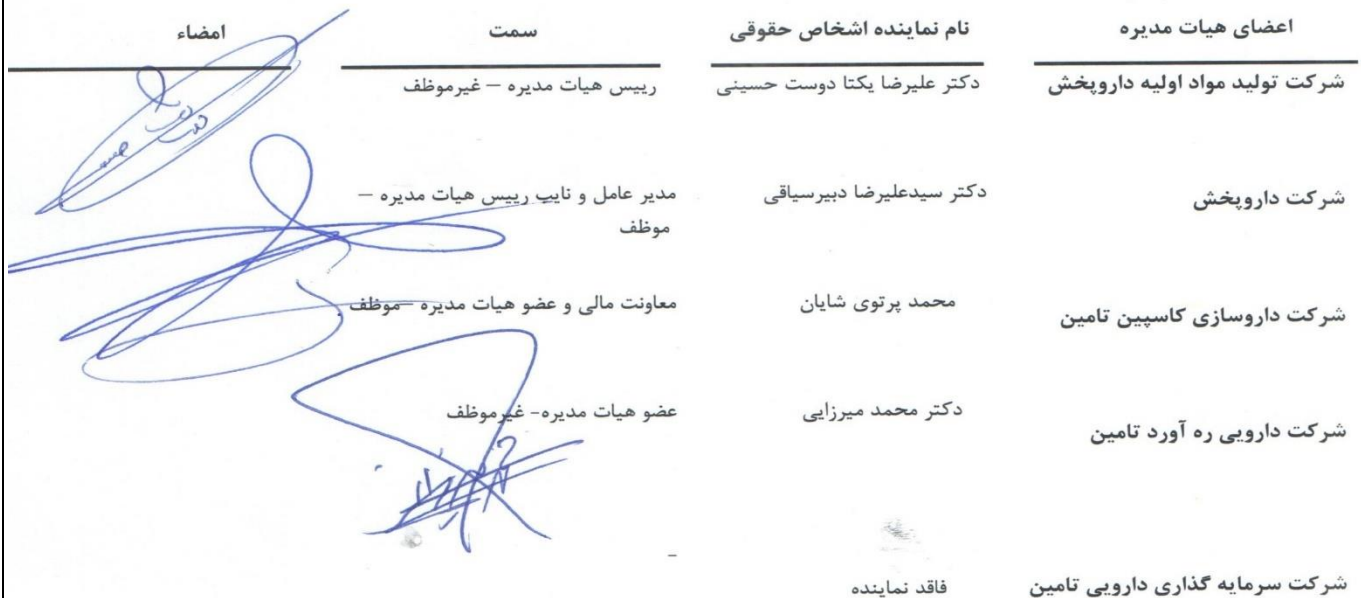 اعضای هیات مدیره نام نماینده اشخاص حقوقی سمت امضاء
شرکت تولید مواد اولیه داروپخش دکتر علیرضا یکتا دوست حسینی رییس هیات مدیره – غیرموظف
شرکت داروپخش دکتر سیدعلیرضا دبیرسیاقی مدیر عامل و نایب رییس هیات مدیره –
موظف
شرکت داروسازی کاسپین تامین محمد پرتوی شایان معاونت مالی و عضو هیات مدیره –موظف
شرکت دارویی ره آورد تامین دکتر محمد میرزایی عضو هیات مدیره- غیرموظف
–
شرکت سرمایه گذاری دارویی تامین فاقد نماینده